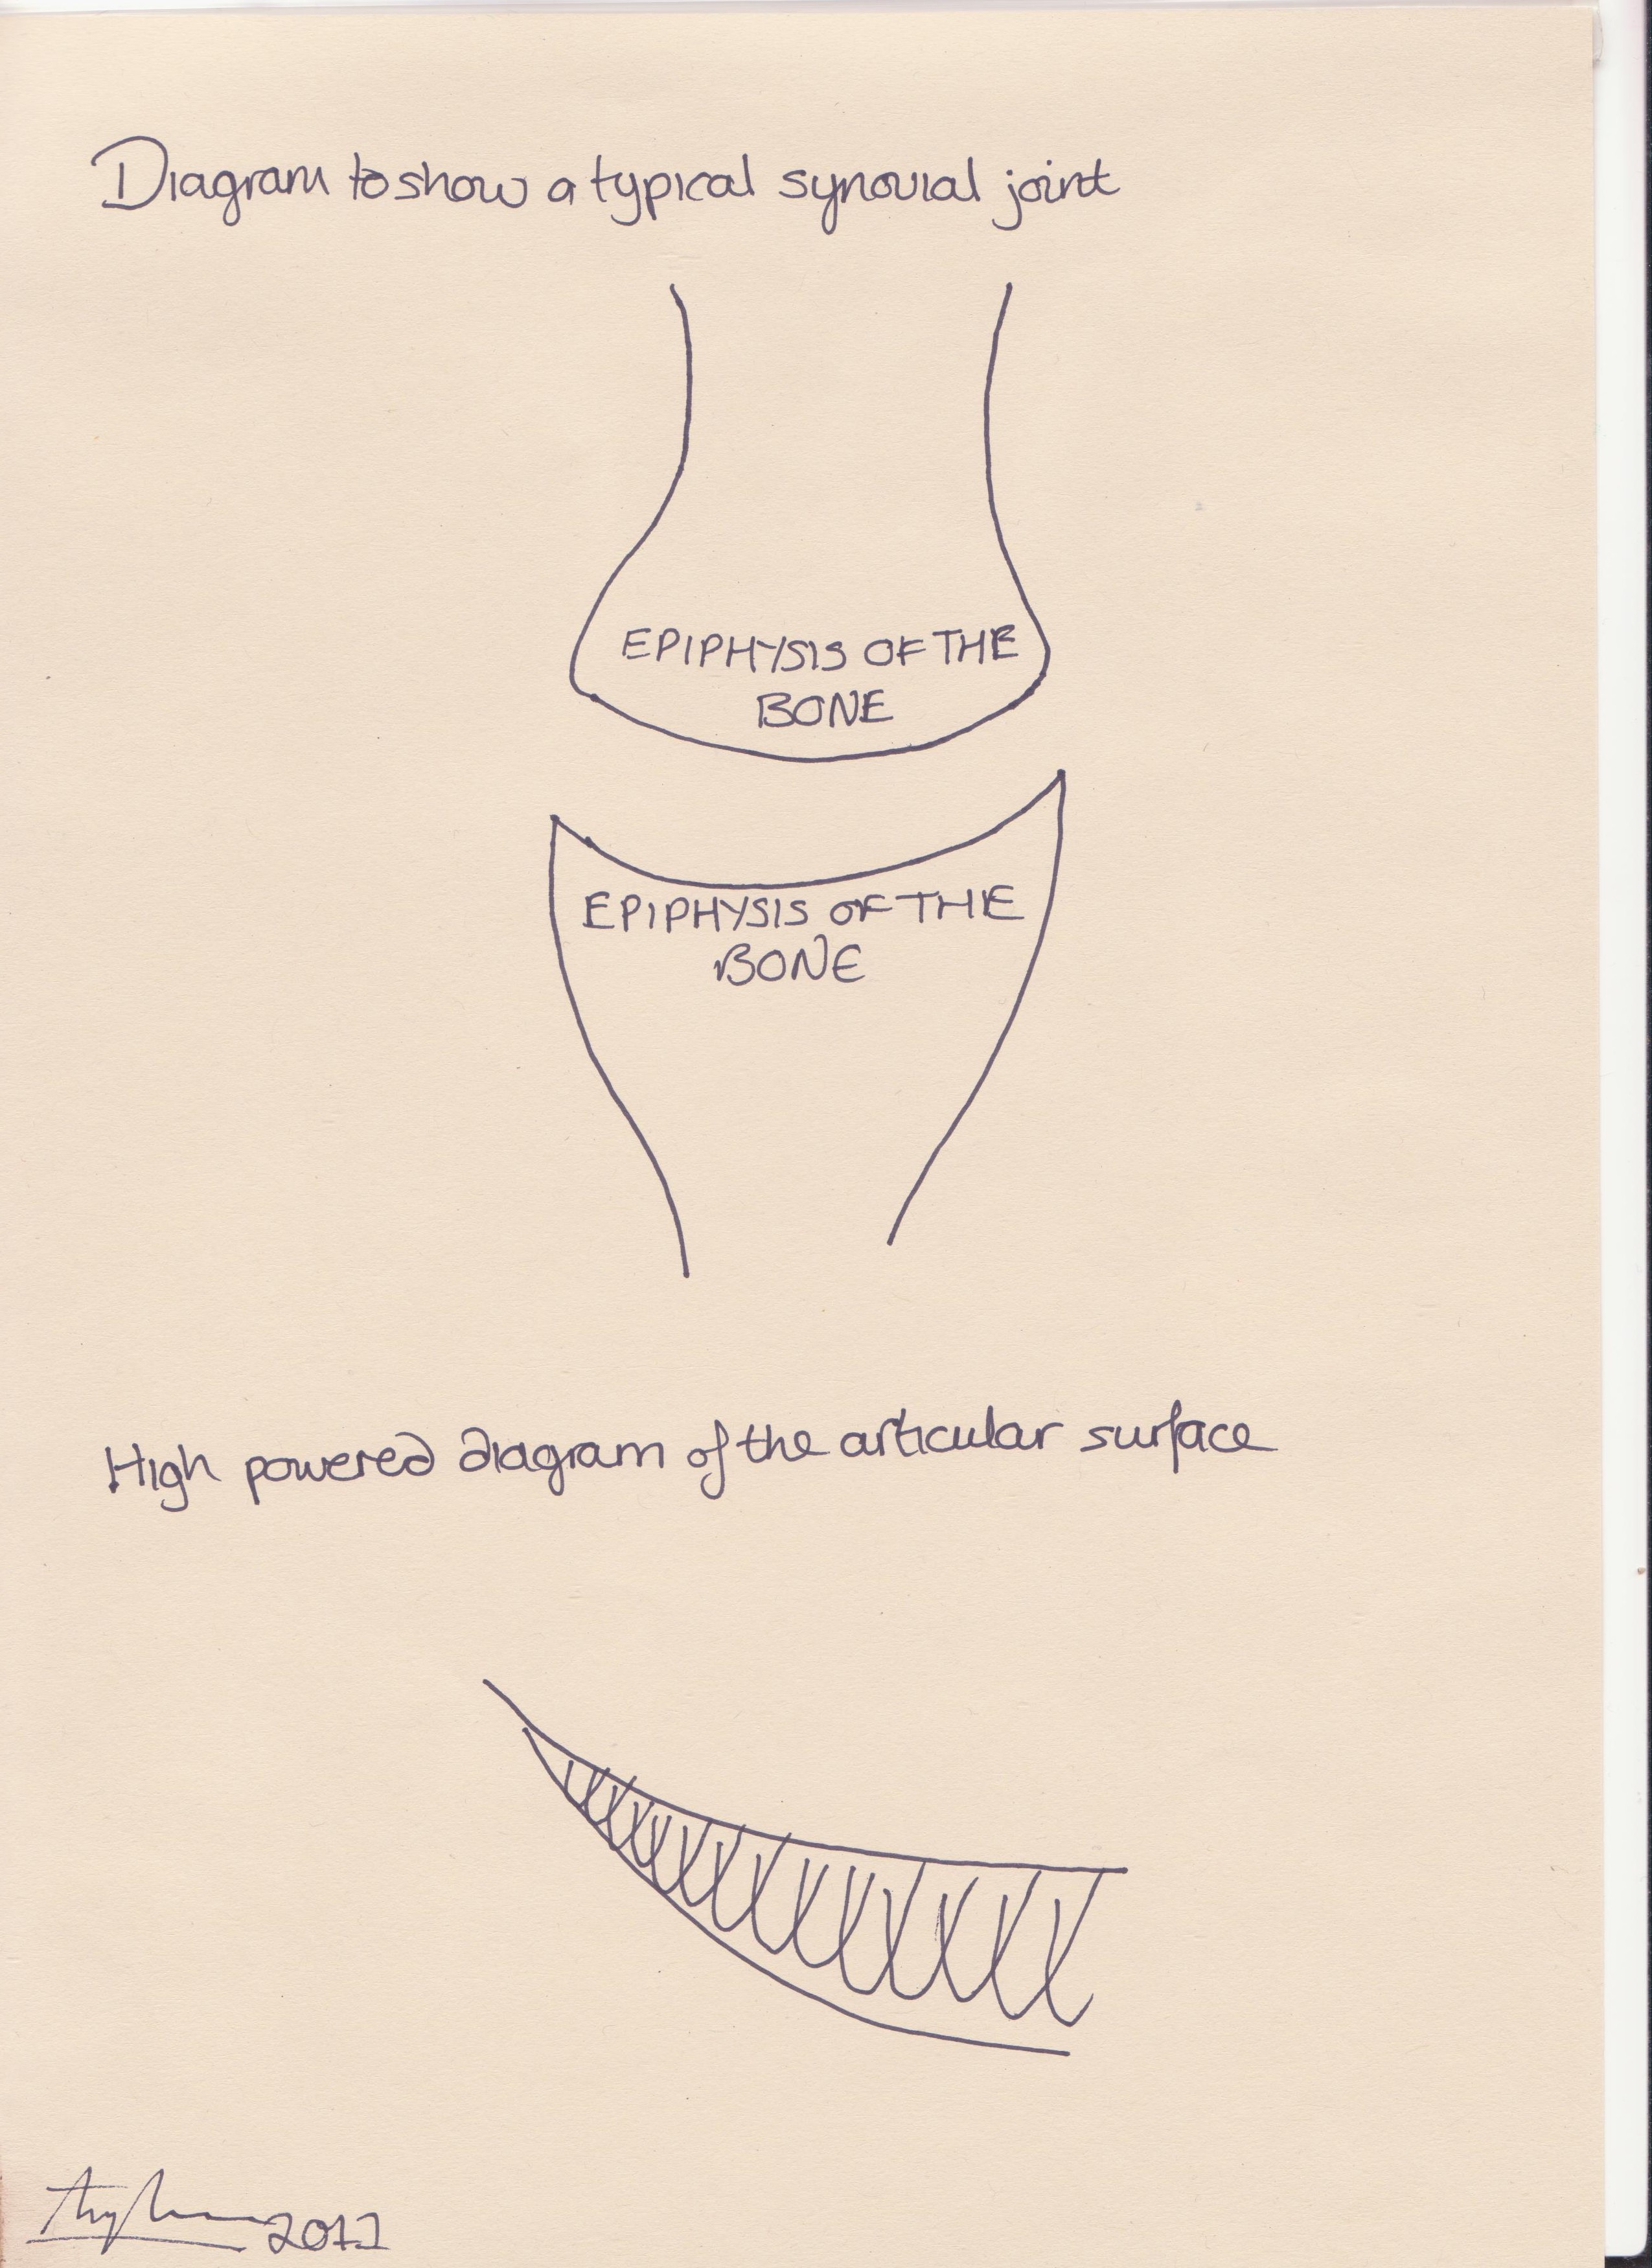 Diagram to show a typical synovial joint
EPIPHYSIS OF THE
BONE
EPIPHYSIS OF THE
BONE
High powered diagram of the articular surface